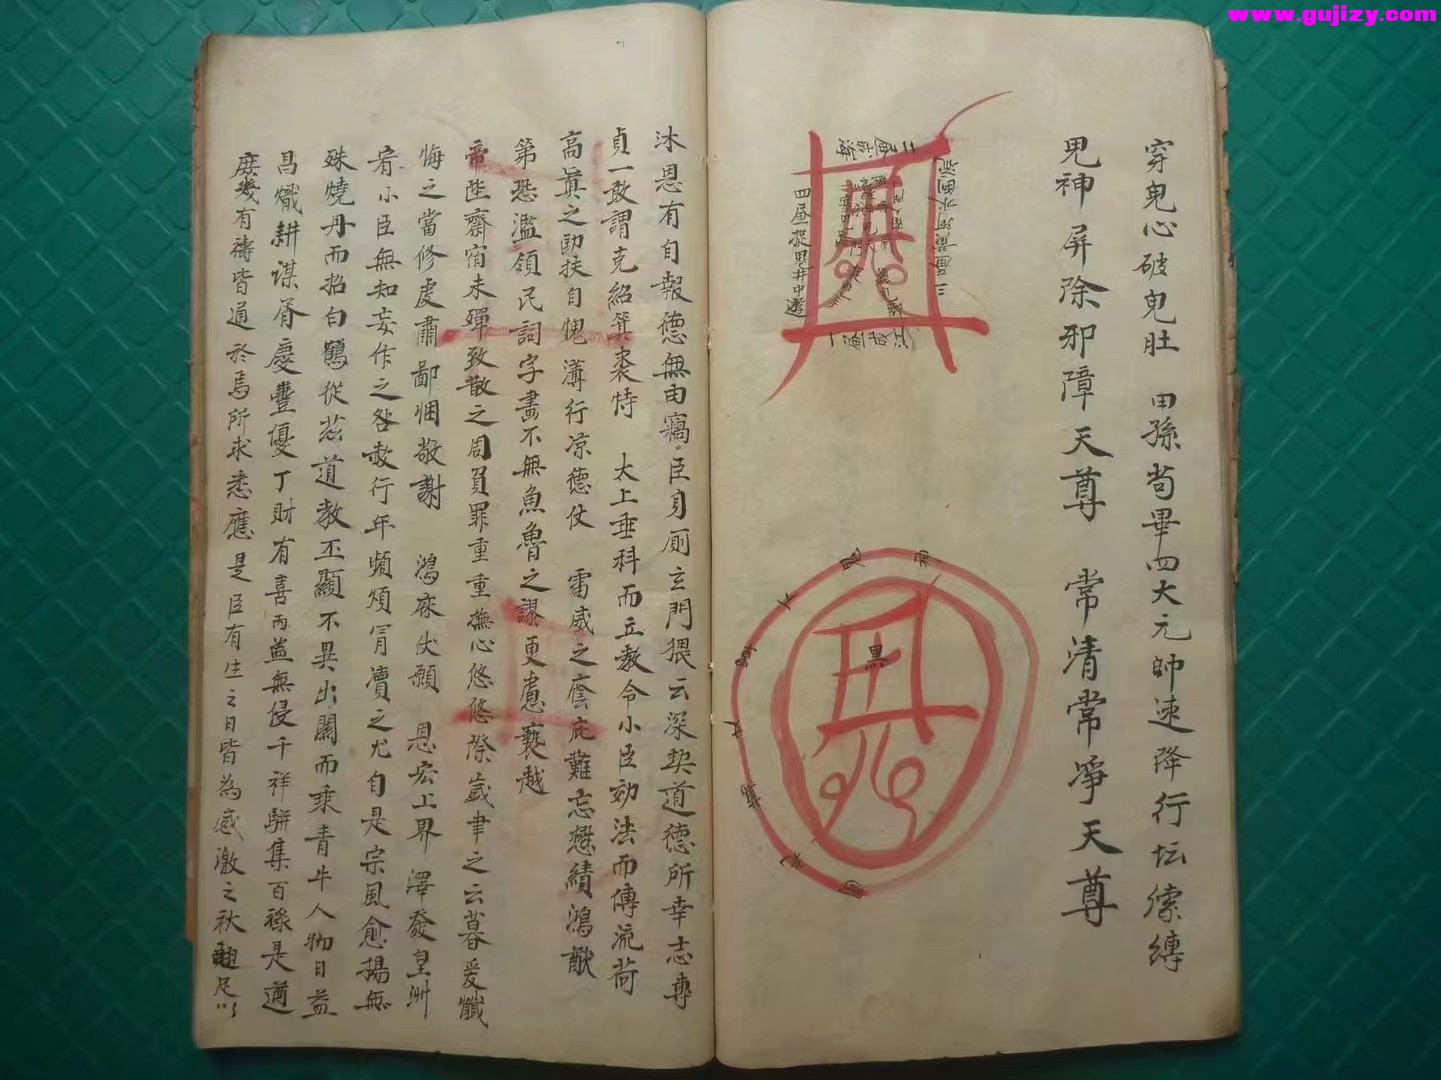 www.gujizy.com
穿鬼心破鬼肚 田孫苟畢四大元帥速降行坛縛
鬼神屏除邪障天尊 常清常淨天尊
四昼提眾井中遊
黑
沐恩有自報德無由竊臣身厠玄門猥云深契道德所幸志專
貞一敢謂克紹箕裘恃 太上垂科而立教令小臣効法而傳流荷
高真之助扶自愧溝行凉德仗 雷威之廕庇難忘懋績鴻猷
第恐濫領民詞字畫不無魚魯之謬更慮褻越
帝陛齋宿未殫致散之周負罪重重撫心悠悠祭歲聿之云暮爰懺
悔之當修虔肅鄙悃敬謝 鴻庥伏願 恩宏上界 澤發皇洲
宥小臣無知妄作之咎赦行年頻煩冐瀆之尤自是宗風愈揚無
殊燒丹而招白鶴從茲道教丕顯不異出關而乘青牛人物日益
昌熾耕謀胥慶豐優丁財有喜而益無侵千祥駢集百祿是遒
庶幾有禱皆通於焉所求悉應是臣有生之日皆為感激之秋